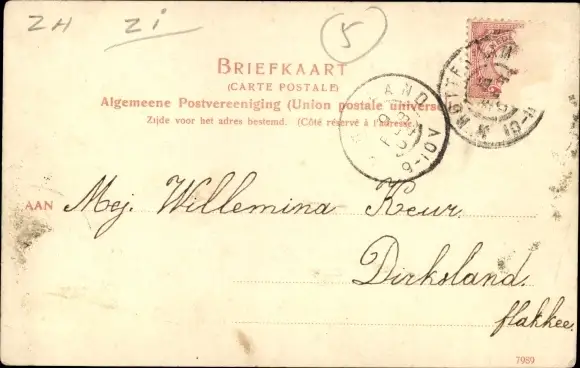 ZH ZI 5
BRIEFKAART
(CARTE POSTALE)
Algemeene Postvereeniging (Union postale universe
Zijde voor het adres bestemd. (Côté réservé à l'adresse.)
AAN Mej. Willemina Keur.
Dirksland.
flakkee.
7989